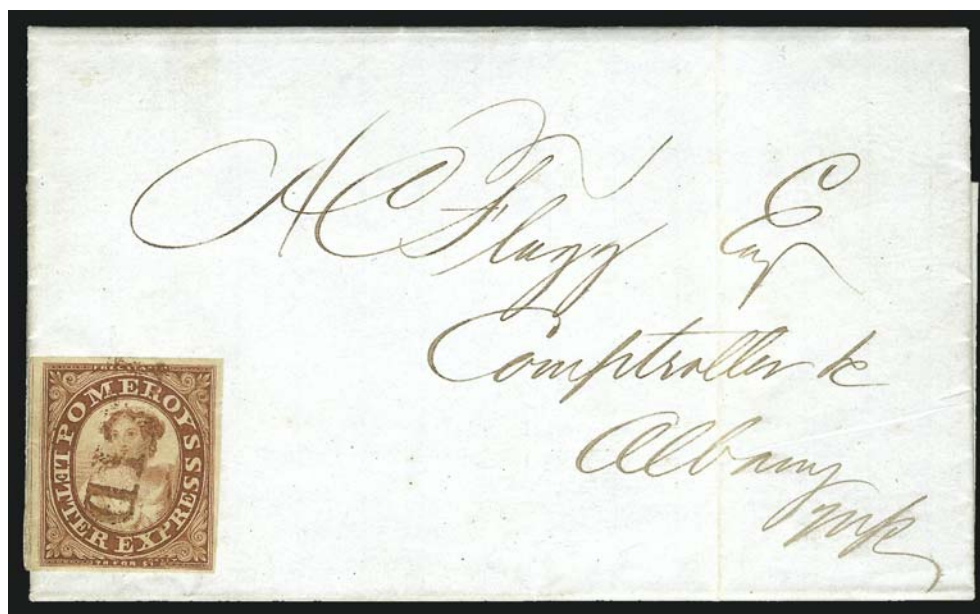 A C Flagg Esq
Comptroller &c
Albany
POMEROY'S
LETTER EXPRESS
20 FOR $1